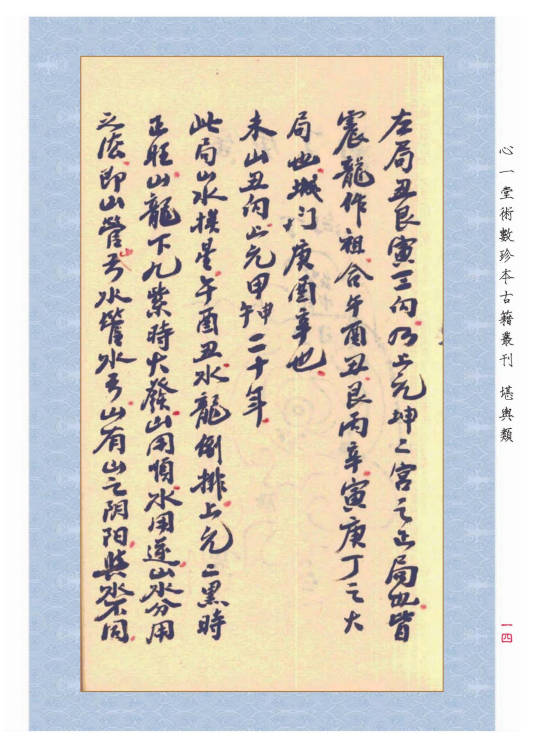 左局丑艮寅三向乃上元坤二宮之正局也皆
震龍作祖合午酉丑艮丙辛寅庚丁之大
局也城门庚酉辛也
未山丑向上元甲申午二十年
此局山水挨星午酉丑水龍倒排上元二黑時
正旺山龍下九紫時大發山用順水用逆山水分用
之法即山管山水管水也山有山之阴阳與水不同
心一堂術數珍本古籍叢刊 堪輿類
一四